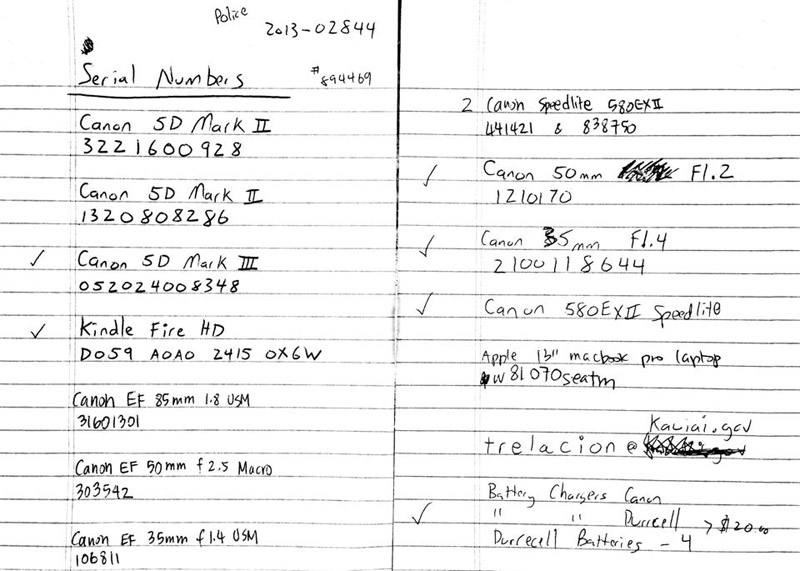 Police
2013-02844
Serial Numbers
#894469
Canon 5D Mark II
3221600928
Canon 5D Mark II
1320808286
✓ Canon 5D Mark III
052024008348
✓ Kindle Fire HD
D059 A0A0 2415 0X6W
Canon EF 85mm 1.8 USM
31601301
Canon EF 50mm f2.5 Macro
303542
Canon EF 35mm f1.4 USM
106811
2 Canon Speedlite 580EXII
441421 & 838750
✓ Canon 50mm F1.2
1210170
✓ Canon 35mm F1.4
2100118644
✓ Canon 580EXII Speedlite
Apple 13" macbook pro laptop
w81070seatm
Kauai.gov
trelacion@
Battery Chargers Canon
✓ " " Durrcell > $20.00
Durrecell Batteries - 4